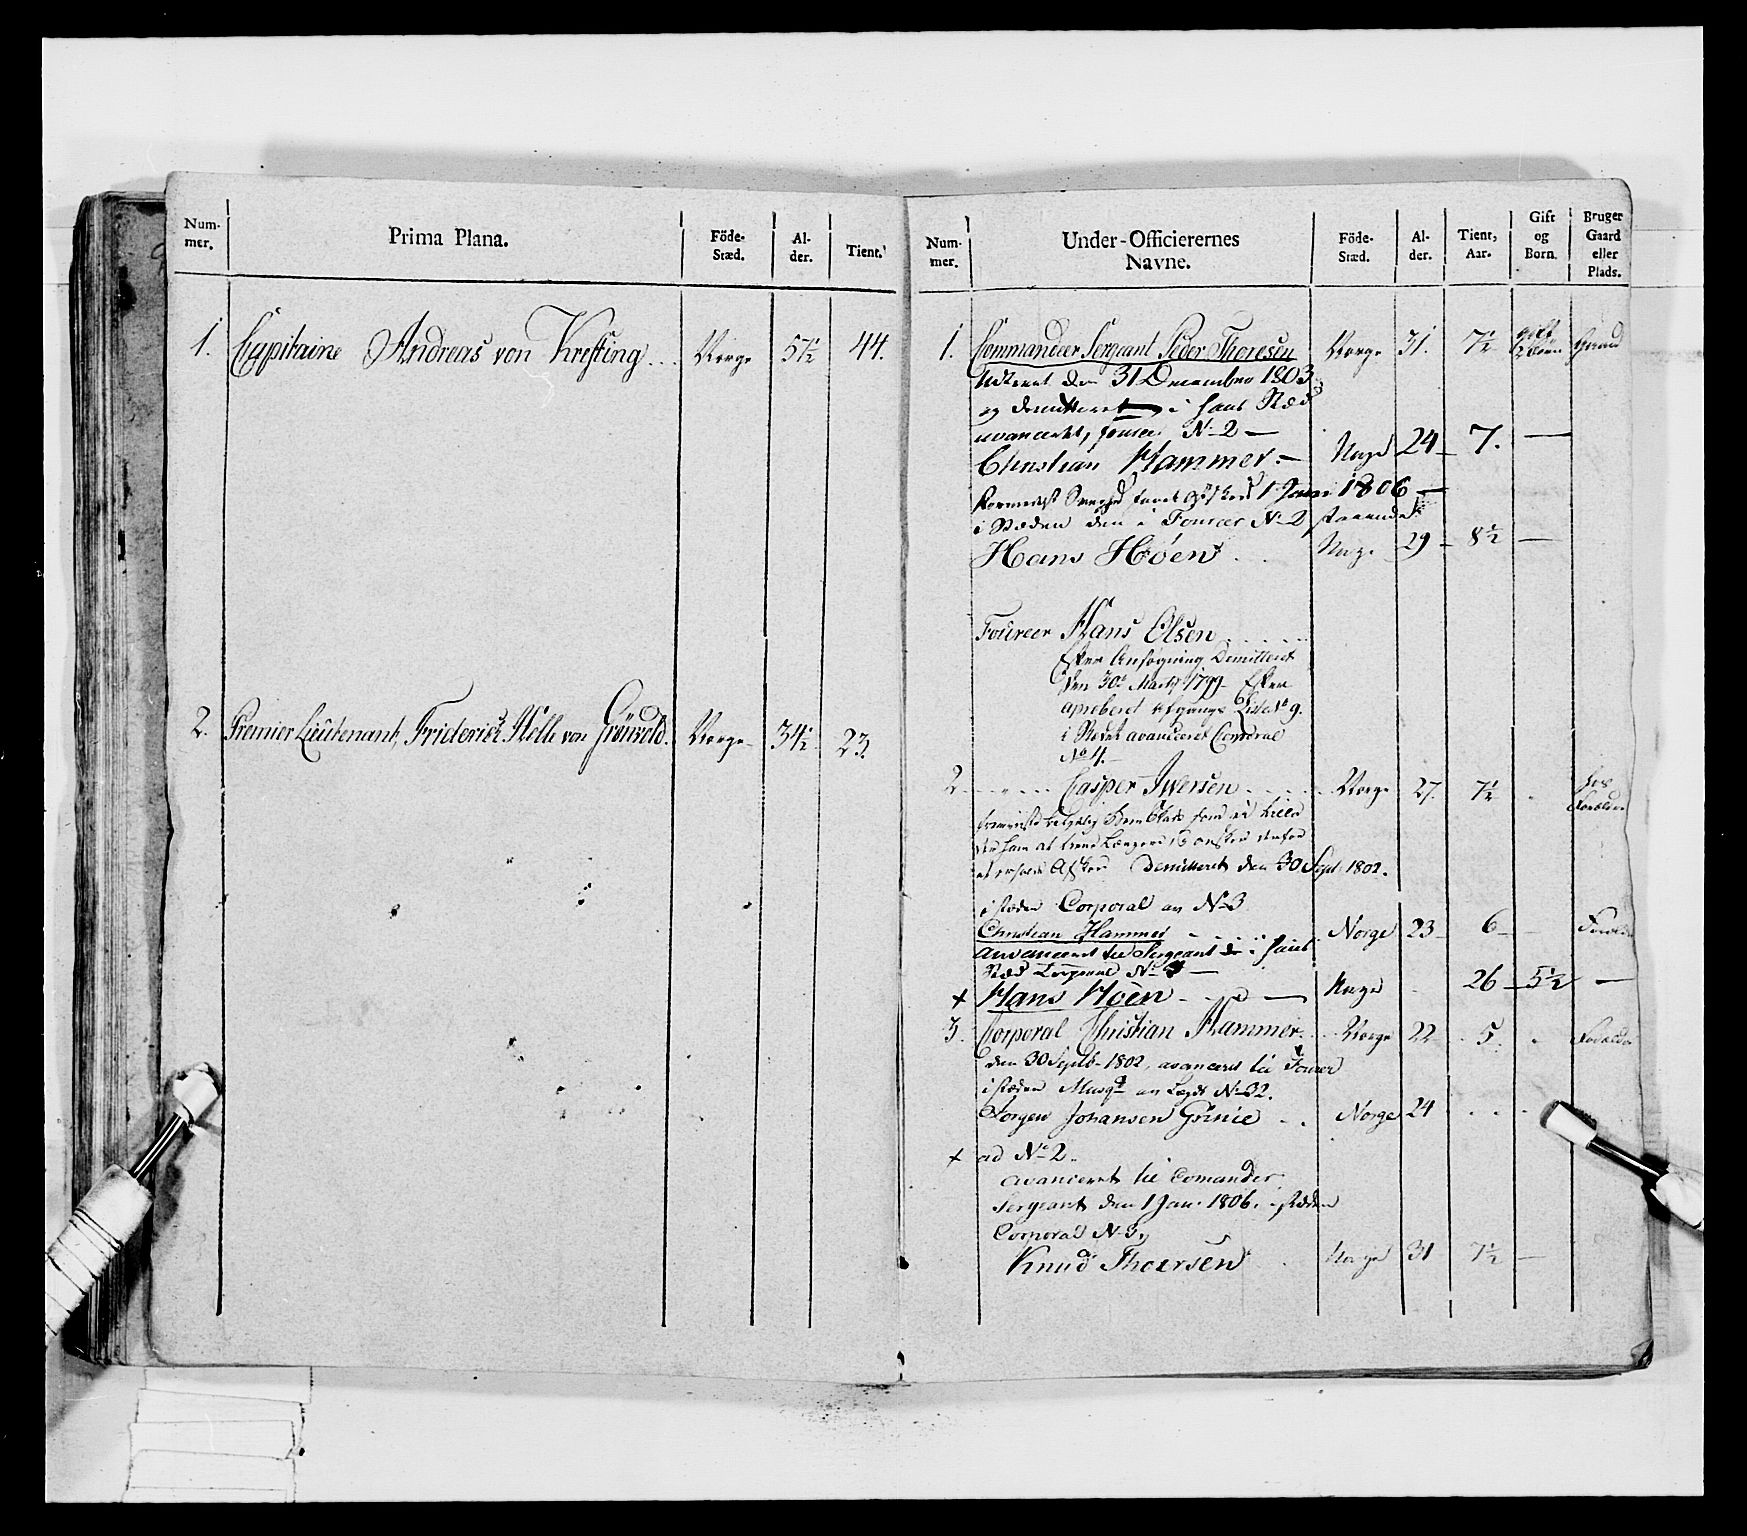 Num-
mer.
Prima Plana.
Föde-
Stæd.
Al-
der.
Tient.
1. Capitaine Andreas von Krefting Norge 57½ 44.
2. Premier Lieutenant, Friderich Helle von Grönvold. Norge 34½ 23.
Num-
mer.
Under-Officierernes
Navne.
Föde-
Stæd.
Al-
der.
Tient,
Aar.
Gift
og
Born.
Bruger
Gaard
eller
Plads.
1. Commandeer Sergeant Peder Thoresen Norge 31. 7½ gift
den 31 December 1803
og demitteret i hans Stæd
avanceret, Fourer No 2 —
Christian Hammer. — Norge 24 7. —
1 Janr 1806 —
i Stæden den i Fourer No 2 staaende
Hans Höen Norge 29 8½ —
Foureer Hans Olsen
Efter Ansøgning Demitteret
den 30te Martz 1799. Efter
aprobert Afgangs Liste No 9.
i Stedet avanceret Corporal
No 4.
2 Casper Iwersen Norge 27. 7½ hos Forældre
Demitteret den 30 Sept 1802.
i stæden Corporal an No 3
Christian Hammer Norge 23 6 Forældre
Avanceret til Sergeant i hans
Stæd Corporal No
+ Hans Höen Norge 26 5½ —
3. Corporal Christian Hammer Norge 22 5. Forældre
den 30 Septb. 1802, avanceret til Fourer
i stæden Musqt an Lægd No 32.
Jorgen Johansen Grinie Norge 24
+ ad No 2.
avanceret til Comander
Sergeant den 1 Jan. 1806. i stæden
Corporal No 3,
Knud Thoersen Norge 31 7½ —